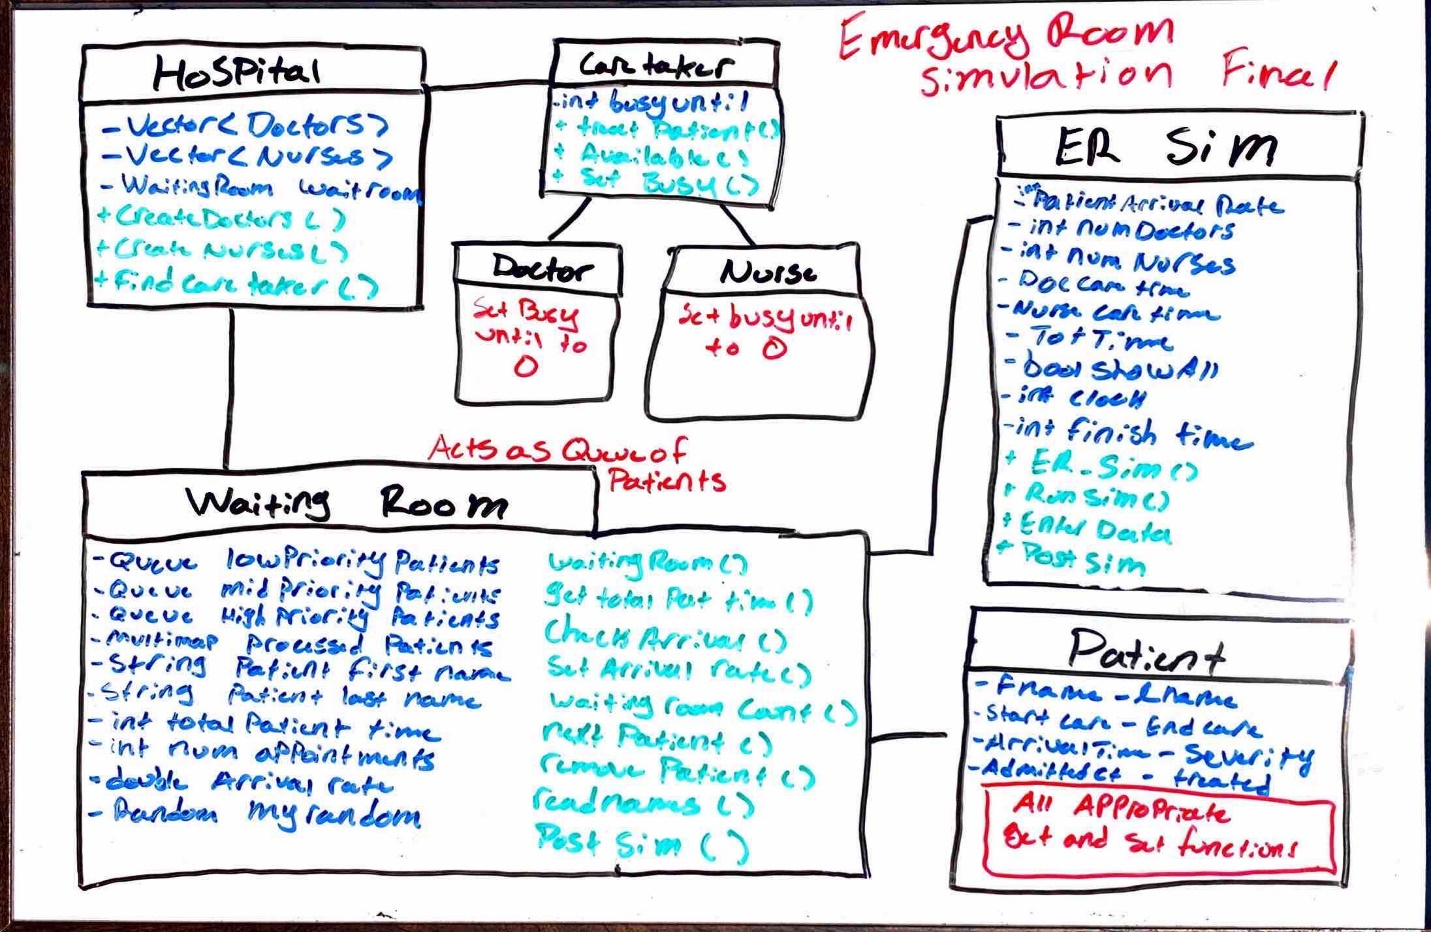 Emergency Room
Simulation Final
Hospital
- Vector< Doctors >
- Vector< Nurses >
- WaitingRoom waitroom
+ CreateDoctors ( )
+ Create Nurses ( )
+ Find Care taker ( )
Care taker
- int busy until
+ treat Patient ( )
+ Available ( )
+ Set Busy ( )
Doctor
Set Busy
until to
0
Nurse
Set busy until
to 0
ER Sim
- int Patient Arrival Rate
- int num Doctors
- int num Nurses
- Doc Care time
- Nurse care time
- Tot Time
- bool Show All
- int clock
- int finish time
+ ER_Sim ( )
+ Run Sim ( )
+ Enter Data
+ Post Sim
Acts as Queue of
Patients
Waiting Room
- Queue low Priority Patients
- Queue mid Priority Patients
- Queue High Priority Patients
- Multimap Processed Patients
- String Patient first name
- String Patient last name
- int total Patient time
- int num appointments
- double Arrival rate
- Random my random
waiting Room ( )
get total Pat time ( )
Check Arrival ( )
Set Arrival rate ( )
waiting room Count ( )
next Patient ( )
remove Patient ( )
read names ( )
Post Sim ( )
Patient
- Fname - Lname
- Start care - End care
- Arrival Time - Severity
- Admitted Ct - treated
All Appropriate
Get and Set functions